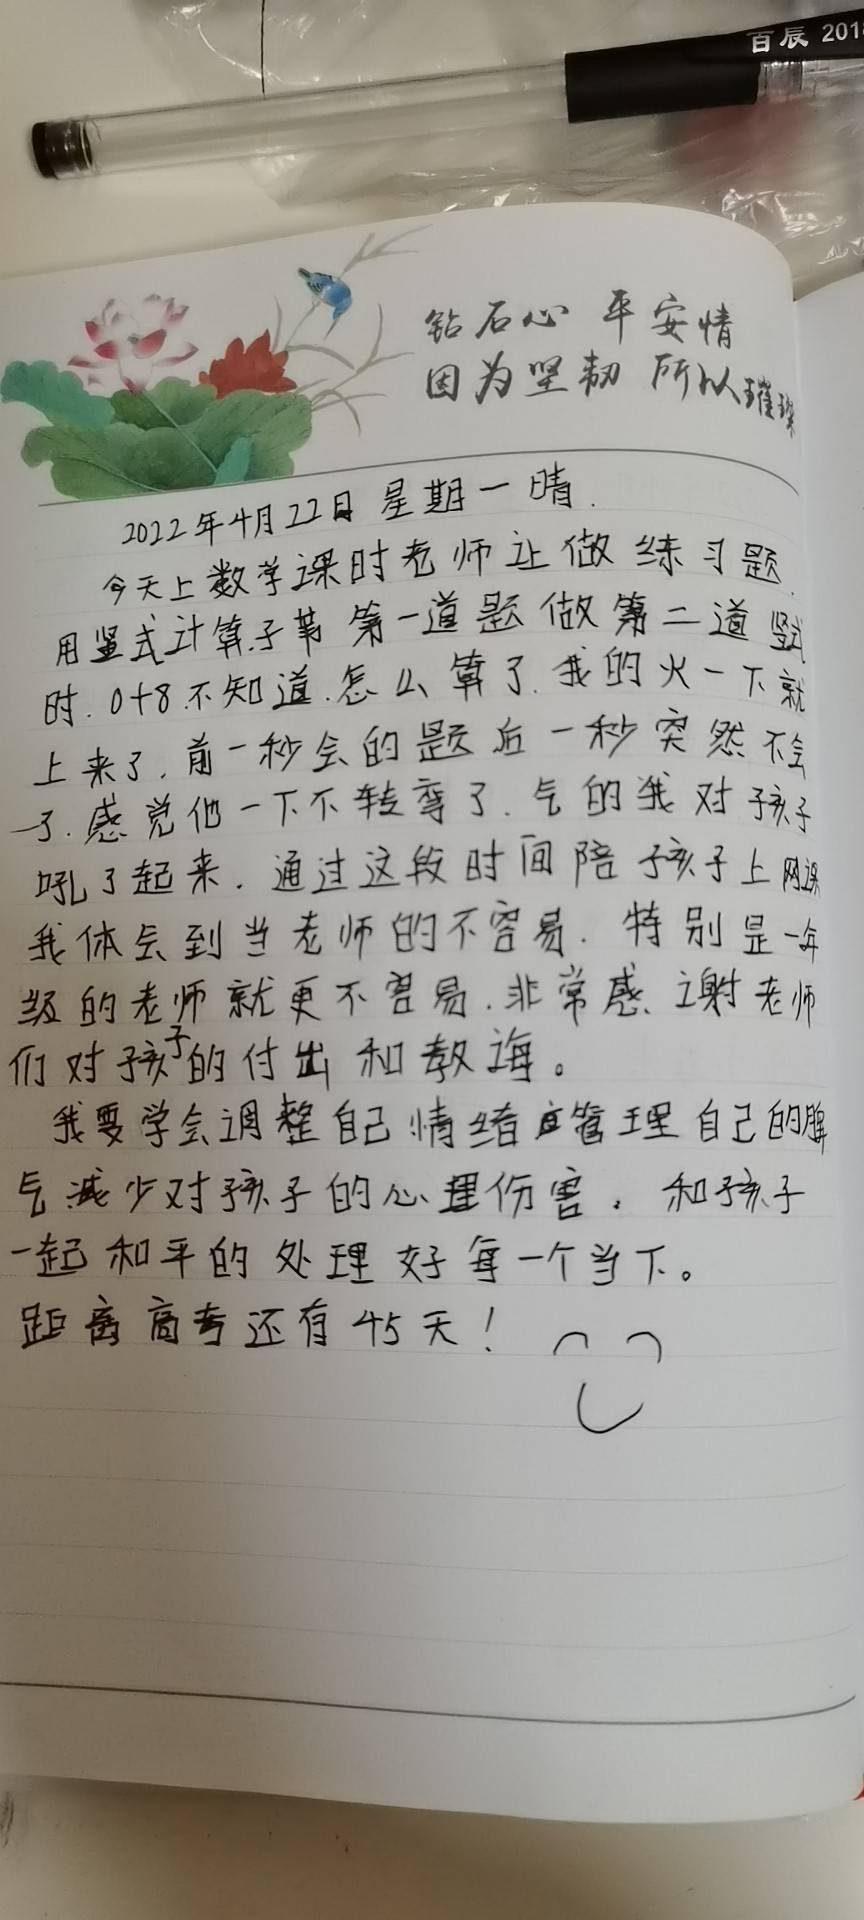 百辰 201
钻石心 平安情
因为坚韧 所以璀璨
2022年4月22日 星期一 晴.
今天上数学课时老师让做练习题.
用竖式计算.子 第一道题做第二道竖式
时.0+8.不知道.怎么算了.我的火一下就
上来了.前一秒会的题后一秒突然不会
了.感觉他一下不转弯了.气的我对孩子
吼了起来.通过这段时间陪孩子上网课
我体会到当老师的不容易.特别是一年
级的老师就更不容易.非常感谢老师
们对孩子的付出和教诲。
我要学会调整自己情绪 管理自己的脾
气减少对孩子的心理伤害。和孩子
一起和平的处理好每一个当下。
距离高考还有45天!